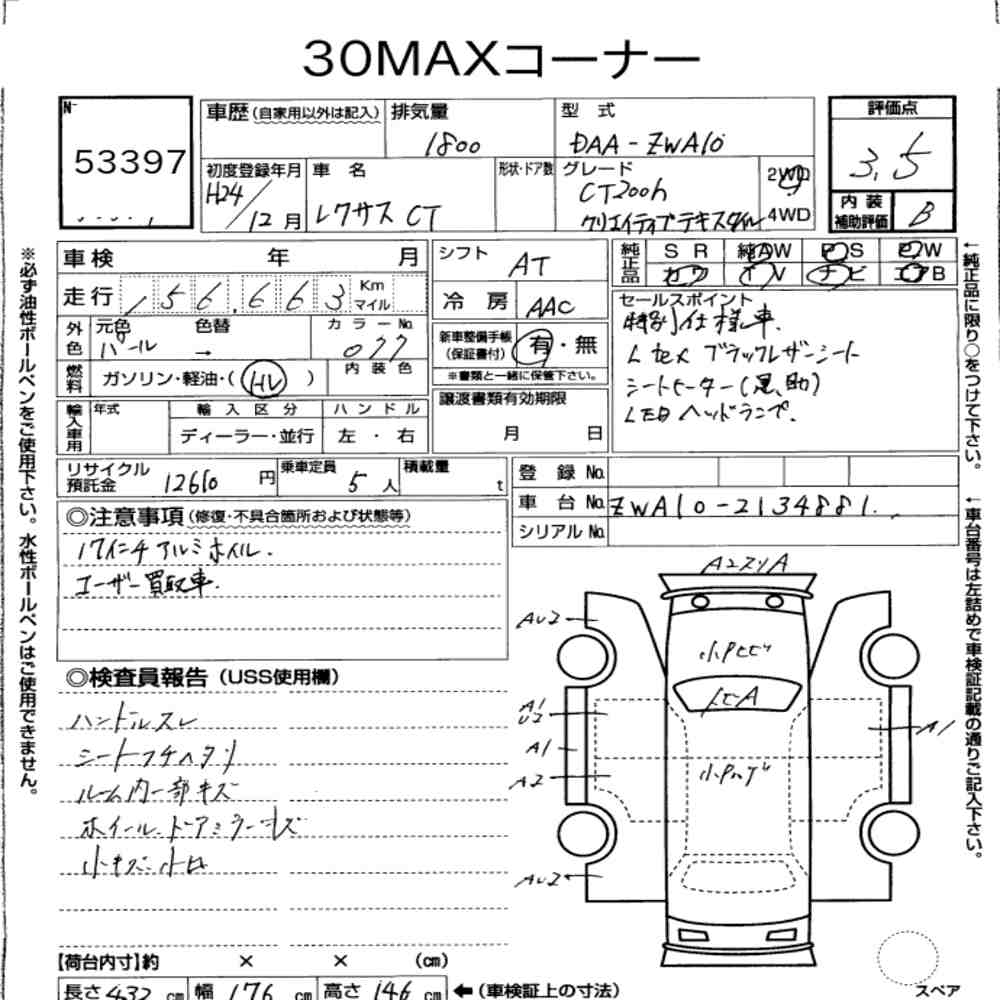 30MAXコーナー
No.
53397
車歴(自家用以外は記入)
排気量
1800
型 式
DAA-ZWA10
評価点
3.5
初度登録年月
H24/12月
車 名
レクサス CT
形状・ドア数
グレード
CT200h
クリエイティブテキスタイル
2WD
4WD
内装補助評価
B
車検 年 月
走行 156,663 Km マイル
外色
元色
パール
色替
→
カラーNo.
077
燃料
ガソリン・軽油・(HV)
内装色
輸入車用
年式
輸入区分
ディーラー・並行
ハンドル
左・右
シフト
AT
冷房
AAC
新車整備手帳
(保証書付)
有・無
※書類と一緒に保管下さい。
譲渡書類有効期限
月 日
純正品
SR 純AW PS PW
カワ TV ナビ エアB
セールスポイント
特別仕様車.
L tex ブラックレザーシート
シートヒーター(運、助)
LEDヘッドランプ.
リサイクル預託金
12610 円
乗車定員
5 人
積載量
t
登録No.
車台No. ZWA10-2134881
シリアルNo.
◎注意事項(修復・不具合箇所および状態等)
17インチアルミホイル.
ユーザー買取車.
◎検査員報告(USS使用欄)
ハンドルスレ
シートコゲヘタリ
ルーム内一部キズ
ホイール、ドアミラーキズ
小キズ小凹
AU2
A1
U2
A1
A2
AU2
小Pヒビ
A1
【荷台内寸】約 × × (cm)
長さ 432 cm 幅 176 cm 高さ 146 cm ←(車検証上の寸法)
スペア
※必ず油性ボールペンをご使用下さい。水性ボールペンはご使用できません。
←純正品に限り○をつけて下さい。
←車台番号は左詰めで車検証記載の通りご記入下さい。